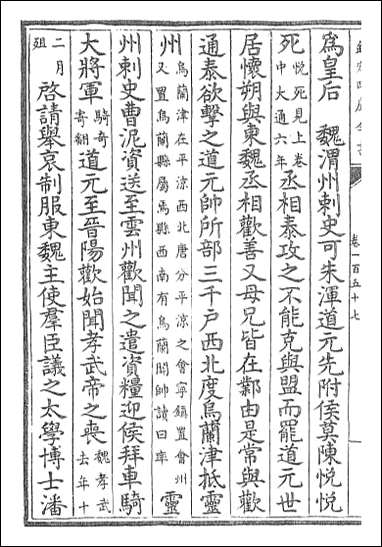 為皇后　魏渭州刺史可朱渾道元先附侯莫陳悅悅
死悅死見上卷中大通六年丞相泰攻之不能克與盟而罷道元世
居懷朔與東魏丞相歡善又母兄皆在鄴由是常與歡
通泰欲擊之道元帥所部三千户西北度烏蘭津抵靈
州烏蘭津在平涼西北唐分平涼之會寧鎮置會州又置烏蘭縣屬焉縣西南有烏蘭關帥讀曰率靈
州刺史曹泥資送至雲州歡聞之遣資糧迎候拜車騎
大將軍騎奇寄翻道元至晉陽歡始聞孝武帝之喪魏孝武去年十
二月殂啓請舉哀制服東魏主使羣臣議之太學博士潘
卷一百五十七